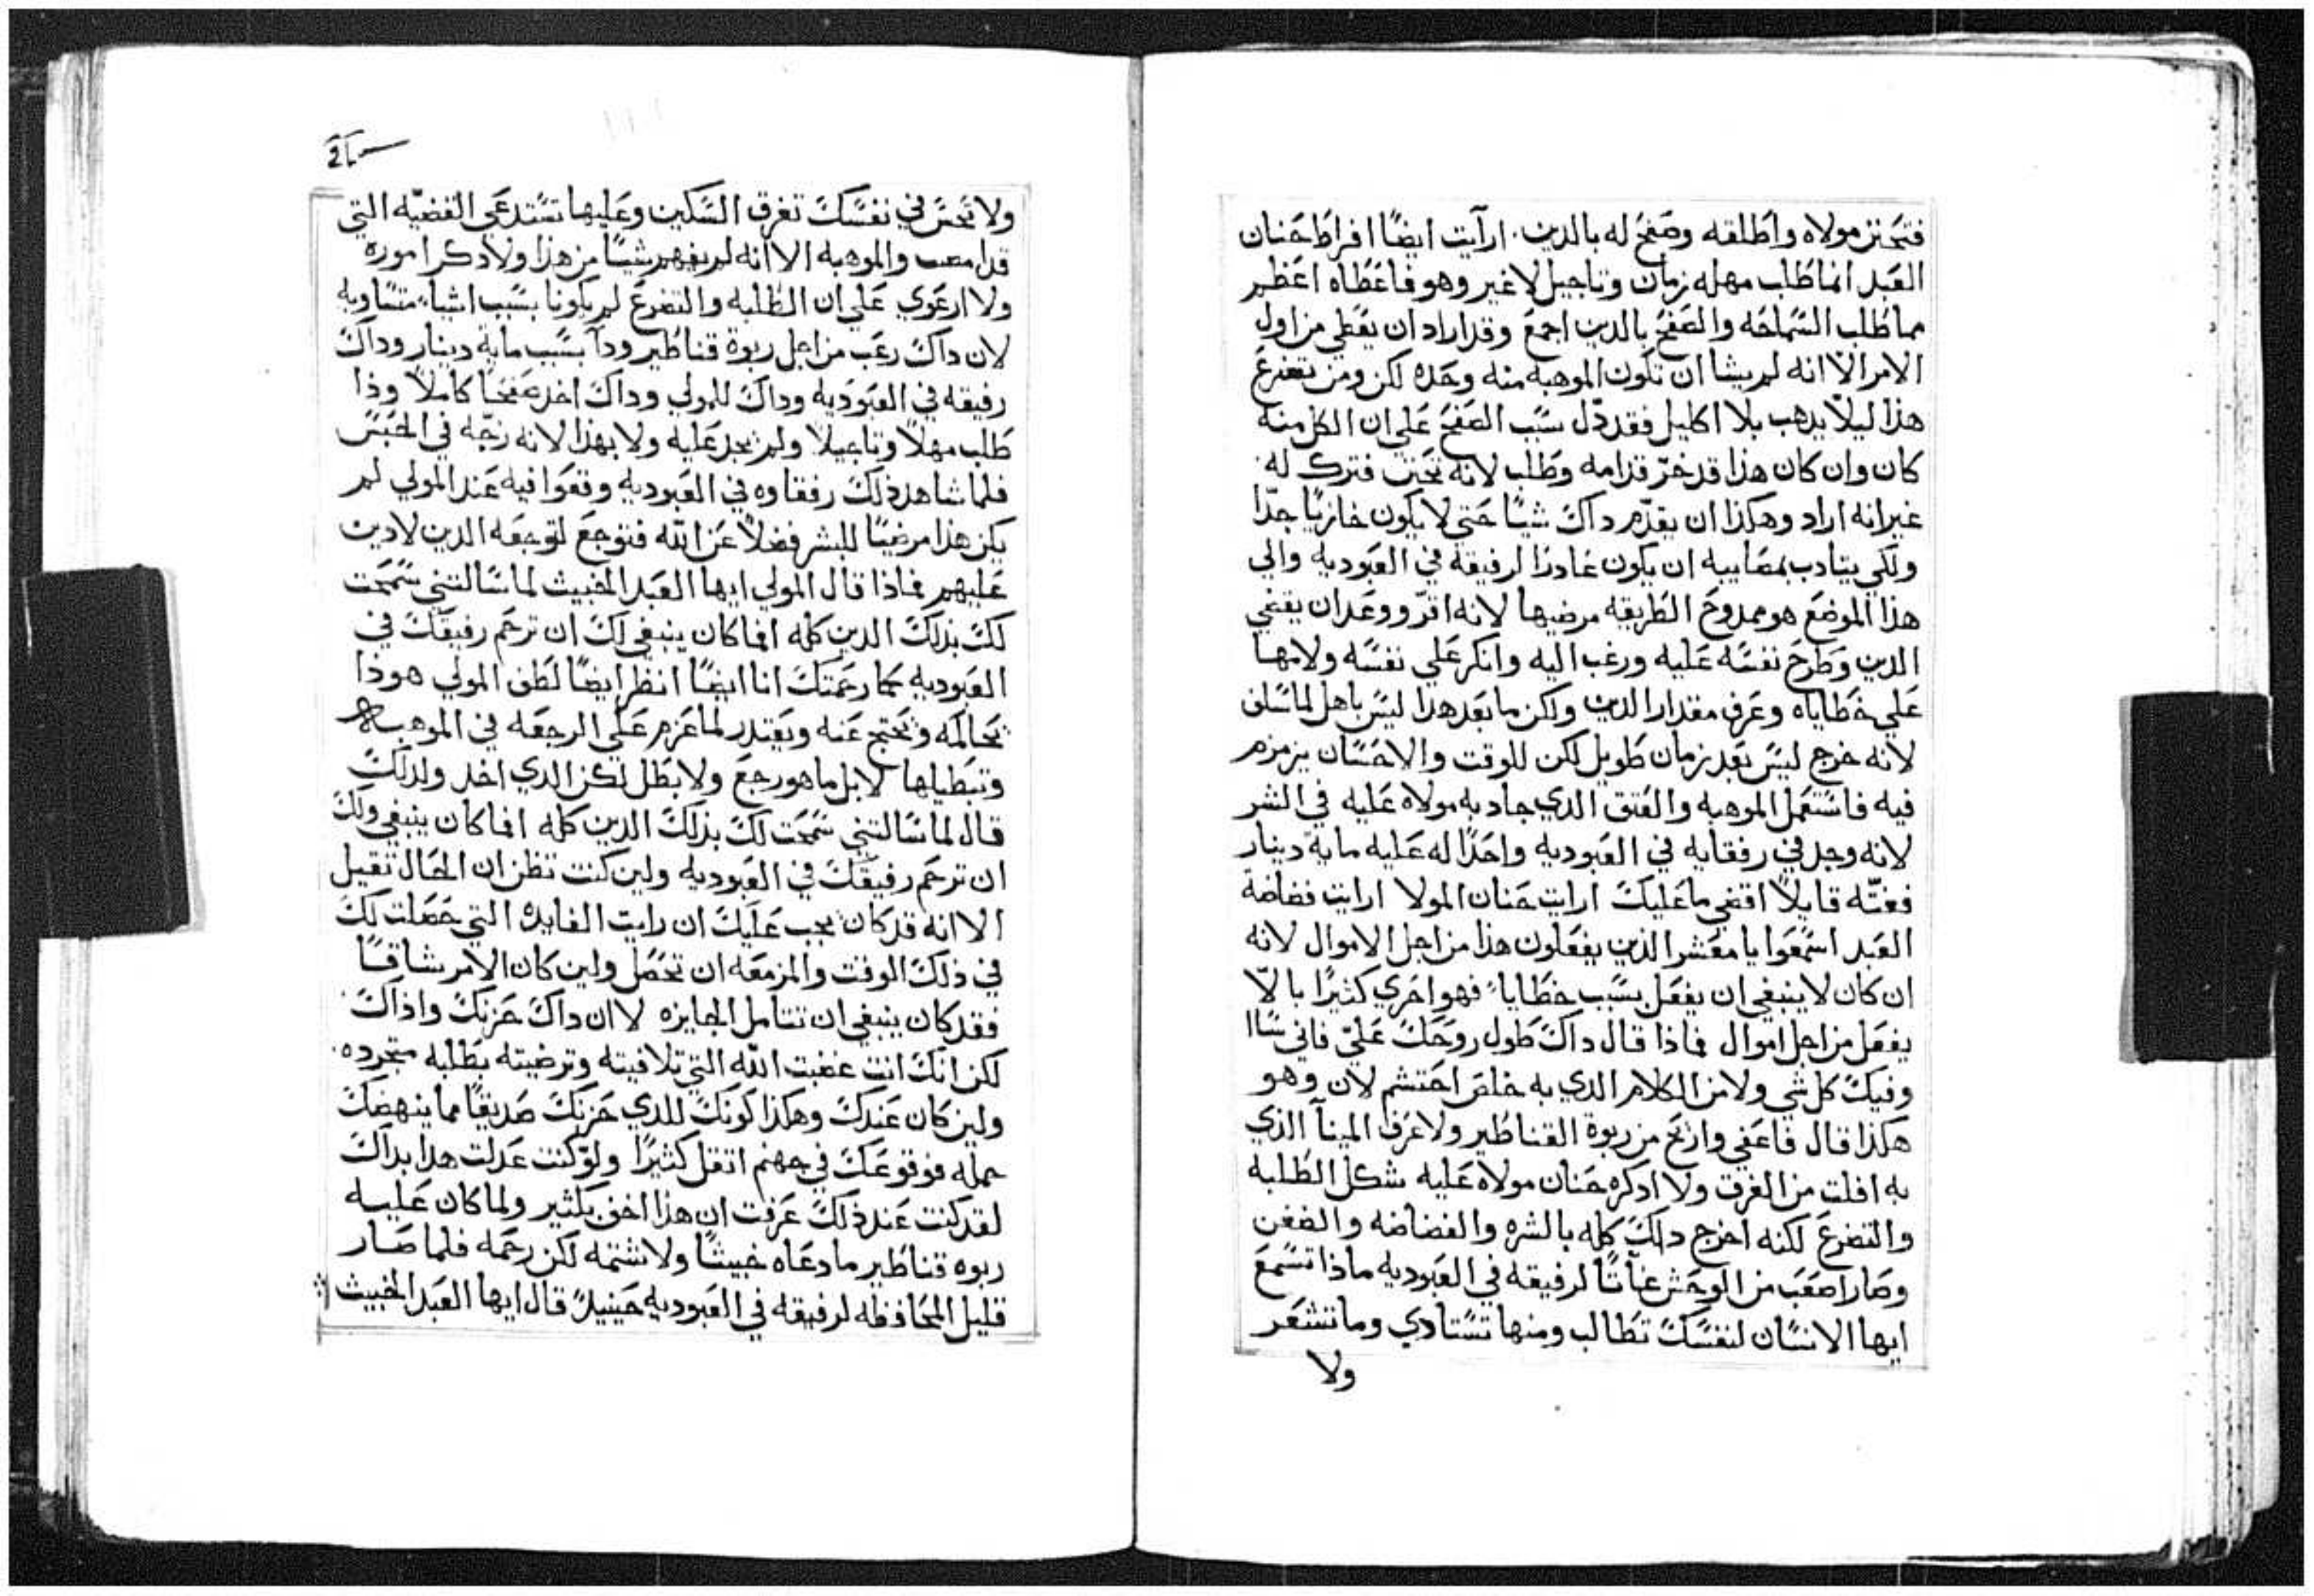 فتحنن مولاه واطلقه وصفح له بالدين. ارآيت ايضًا افراط حنان
العبد انما طلب مهله زمان وتاجيل لا غير وهو فاعطاه اعظم
مما طلب السماحه والصفح بالدين اجمع وقد اراد ان يعطي من اول
الامر الّا انه لم يشا ان تكون الموهبه منه وحده لكن ومن تضرع
هذا ليلّا يدهب بلا اكليل فقد دّل سبب الصفح علي ان الكل منه
كان وان كان هذا قد خرّ قدامه وطلب لانه تحنن فترك له.
غير انه اراد وهكذا ان يقدّم داك شيًا حتي لا يكون خازيًا جدّا
ولكي يتادب بمصايبه ان يكون عادرًا لرفيقه في العبوديه والي
هذا الموضع هو ممدوح الطريقه مرضيها لانه اقرّ ووعد ان يقضي
الدين وطرح نفسه عليه ورغب اليه وانكر علي نفسه ولامها
علي خطاياه وعرف مقدار الدين ولكن ما بعد هدا ليس باهل لما سلف
لانه خرج ليس بعد زمان طويل لكن للوقت والاحسان يزمزم
فيه فاستعمل الموهبه والعتق الدي جاد به مولاه عليه في الشر
لانه وجد في رفقايه في العبوديه واحدًا له عليه مايه دينار
فغتّه قايلًا اقضي ما عليك ارايت حنان المولا ارايت فضاضة
العبد اسمعوا يا معشر الذين يفعلون هذا من اجل الاموال لانه
ان كان لا ينبغي ان يفعل بسبب خطايا فهو احري كثيرًا بالّا
يفعل من اجل اموال فماذا قال داك طول روحك عليّ فاني ساا
وفيك كل شي ولا من الكلام الدي به خلص احتشم لان وهو
هكذا قال فاعفي وارتح من ربوة القناطير ولا عرف المينآ الذي
به افلت من الغرق ولا ادكره حنان مولاه عليه شكل الطلبه
والتضرع لكنه اخرج دالك كله بالشره والفضاضه والضغن
وصار اصعب من الوحش غآتًا لرفيقه في العبوديه ماذا تسمع
ايها الانسان لنفسك تطالب ومنها تستادي وما تشعر
ولا
ولا تحس في نفسك تغرق السكين وعليها تستدعي القضيّه التي
قدامصت والموهبه الا انه لم يفهم شيًا من هذا ولا دكر اموره
ولا ارعوي علي ان الطلبه والتضرع لم يكونا بسبب اشيآ متساويه
لان داك رغب من اجل ربوة قناطير ودآ بسبب ماية دينار وداك
رفيقه في العبوديه وداك للمولي وداك اخد صفحًا كاملًا وذا
طلب مهلًا وتاجيلًا ولم يجد عليه ولا بهذا لانه زجّه في الحبس
فلما شاهد ذلك رفقاوه في العبوديه وقعوا فيه عند المولي لم
يكن هذا مرضيًا للبشر فضلًا عن الله فتوجع لتوجعه الدين لا دين
عليهم فماذا قال المولي ايها العبد الخبيث لما سالتني سمحت
لك بذلك الدين كله افما كان ينبغي لك ان ترحم رفيقك في
العبوديه كما رحمتك انا ايضًا انظر ايضًا لطف المولي هوذا
يحالمه ويحتج عنه ويعتدر لما عزم علي الرجعه في الموهبه
وتبطياها لا بل ما هو رجع ولا بطل لكن الدي اخد ولدلك
قال لما سالتني سمحت لك بذلك الدين كله افما كان ينبغي ولك
ان ترحم رفيقك في العبوديه ولين كنت تظن ان الحال تقيل
الا انه قد كان يجب عليك ان رايت الفايده التي حصلت لك
في ذلك الوقت والمزمعه ان تحصل ولين كان الامر شاقًا
فقد كان ينبغي ان تتامل الجايزه لا ان داك حزنك واذاك.
لكن انك انت غضبت الله التي تلافيته وترضيته بطلبه متجرده.
ولين كان عندك وهكذا كونك للدي حزنك صديقًا مما ينهضك
حمله فوقوعك في جهنم اتقل كثيرًا ولو كنت عدلت هدا بداك
لقد كنت عند ذلك عرفت ان هذا اخف بكثير ولما كان عليه
ربوه قناطير ما دعاه خبيثًا ولا شتمه لكن رحمه فلما صار
قليل المحافظه لرفيقه في العبوديه حينيدٍ قال ايها العبد الخبيث